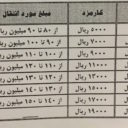 کارمزد مبلغ مورد انتقال
۵۰۰۰ ریال از ۸۰ تا ۹۰ میلیون ریال
۷۰۰۰ ریال از ۹۰ تا ۱۰۰ میلیون ریال
۹۰۰۰ ریال از ۱۰۰ تا ۱۱۰ میلیون ریال
۱۱۰۰۰ ریال از ۱۱۰ تا ۱۲۰ میلیون ریال
۱۳۰۰۰ ریال از ۱۲۰ تا ۱۳۰ میلیون ریال
۱۵۰۰۰ ریال از ۱۳۰ تا ۱۴۰ میلیون ریال
۱۷۰۰۰ ریال از ۱۴۰ تا ۱۵۰ میلیون ریال
۱۹۰۰۰ ریال